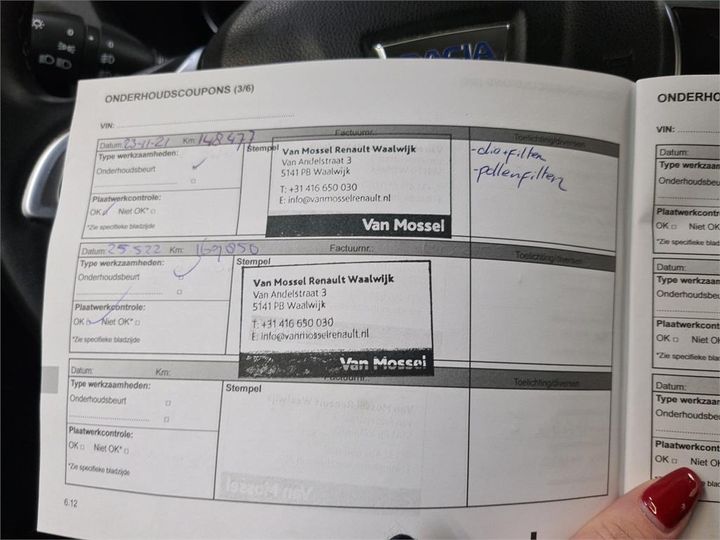 DACIA
ONDERHOUDSCOUPONS (3/6)
VIN:
Datum: 23-11-21 Km: 148477 Factuurnr.: Toelichting/diversen
Type werkzaamheden:
Onderhoudsbeurt
Plaatwerkcontrole:
OK Niet OK*
*Zie specifieke bladzijde
Stempel
Van Mossel Renault Waalwijk
Van Andelstraat 3
5141 PB Waalwijk
T: +31 416 650 030
E: info@vanmosselrenault.nl
Van Mossel
-olie+filter
-pollenfilter
Datum: 25.5.22 Km: 169850 Factuurnr.: Toelichting/diversen
Type werkzaamheden:
Onderhoudsbeurt
Plaatwerkcontrole:
OK Niet OK*
*Zie specifieke bladzijde
Stempel
Van Mossel Renault Waalwijk
Van Andelstraat 3
5141 PB Waalwijk
T: +31 416 650 030
E: info@vanmosselrenault.nl
Van Mossel
Datum: Km: Factuurnr.: Toelichting/diversen
Type werkzaamheden:
Onderhoudsbeurt
Plaatwerkcontrole:
OK Niet OK*
*Zie specifieke bladzijde
Stempel
6.12
ONDERHO
VIN:
Datum:
Type werkzaam
Onderhoudsbeu
Plaatwerkcontro
OK Niet OK
*Zie specifieke blad
Datum:
Type werkzaam
Onderhoudsbeu
Plaatwerkcontro
OK Niet OK
*Zie specifieke blad
Datum:
Type werkzaam
Onderhoudsbeu
Plaatwerkcont
OK Niet OK